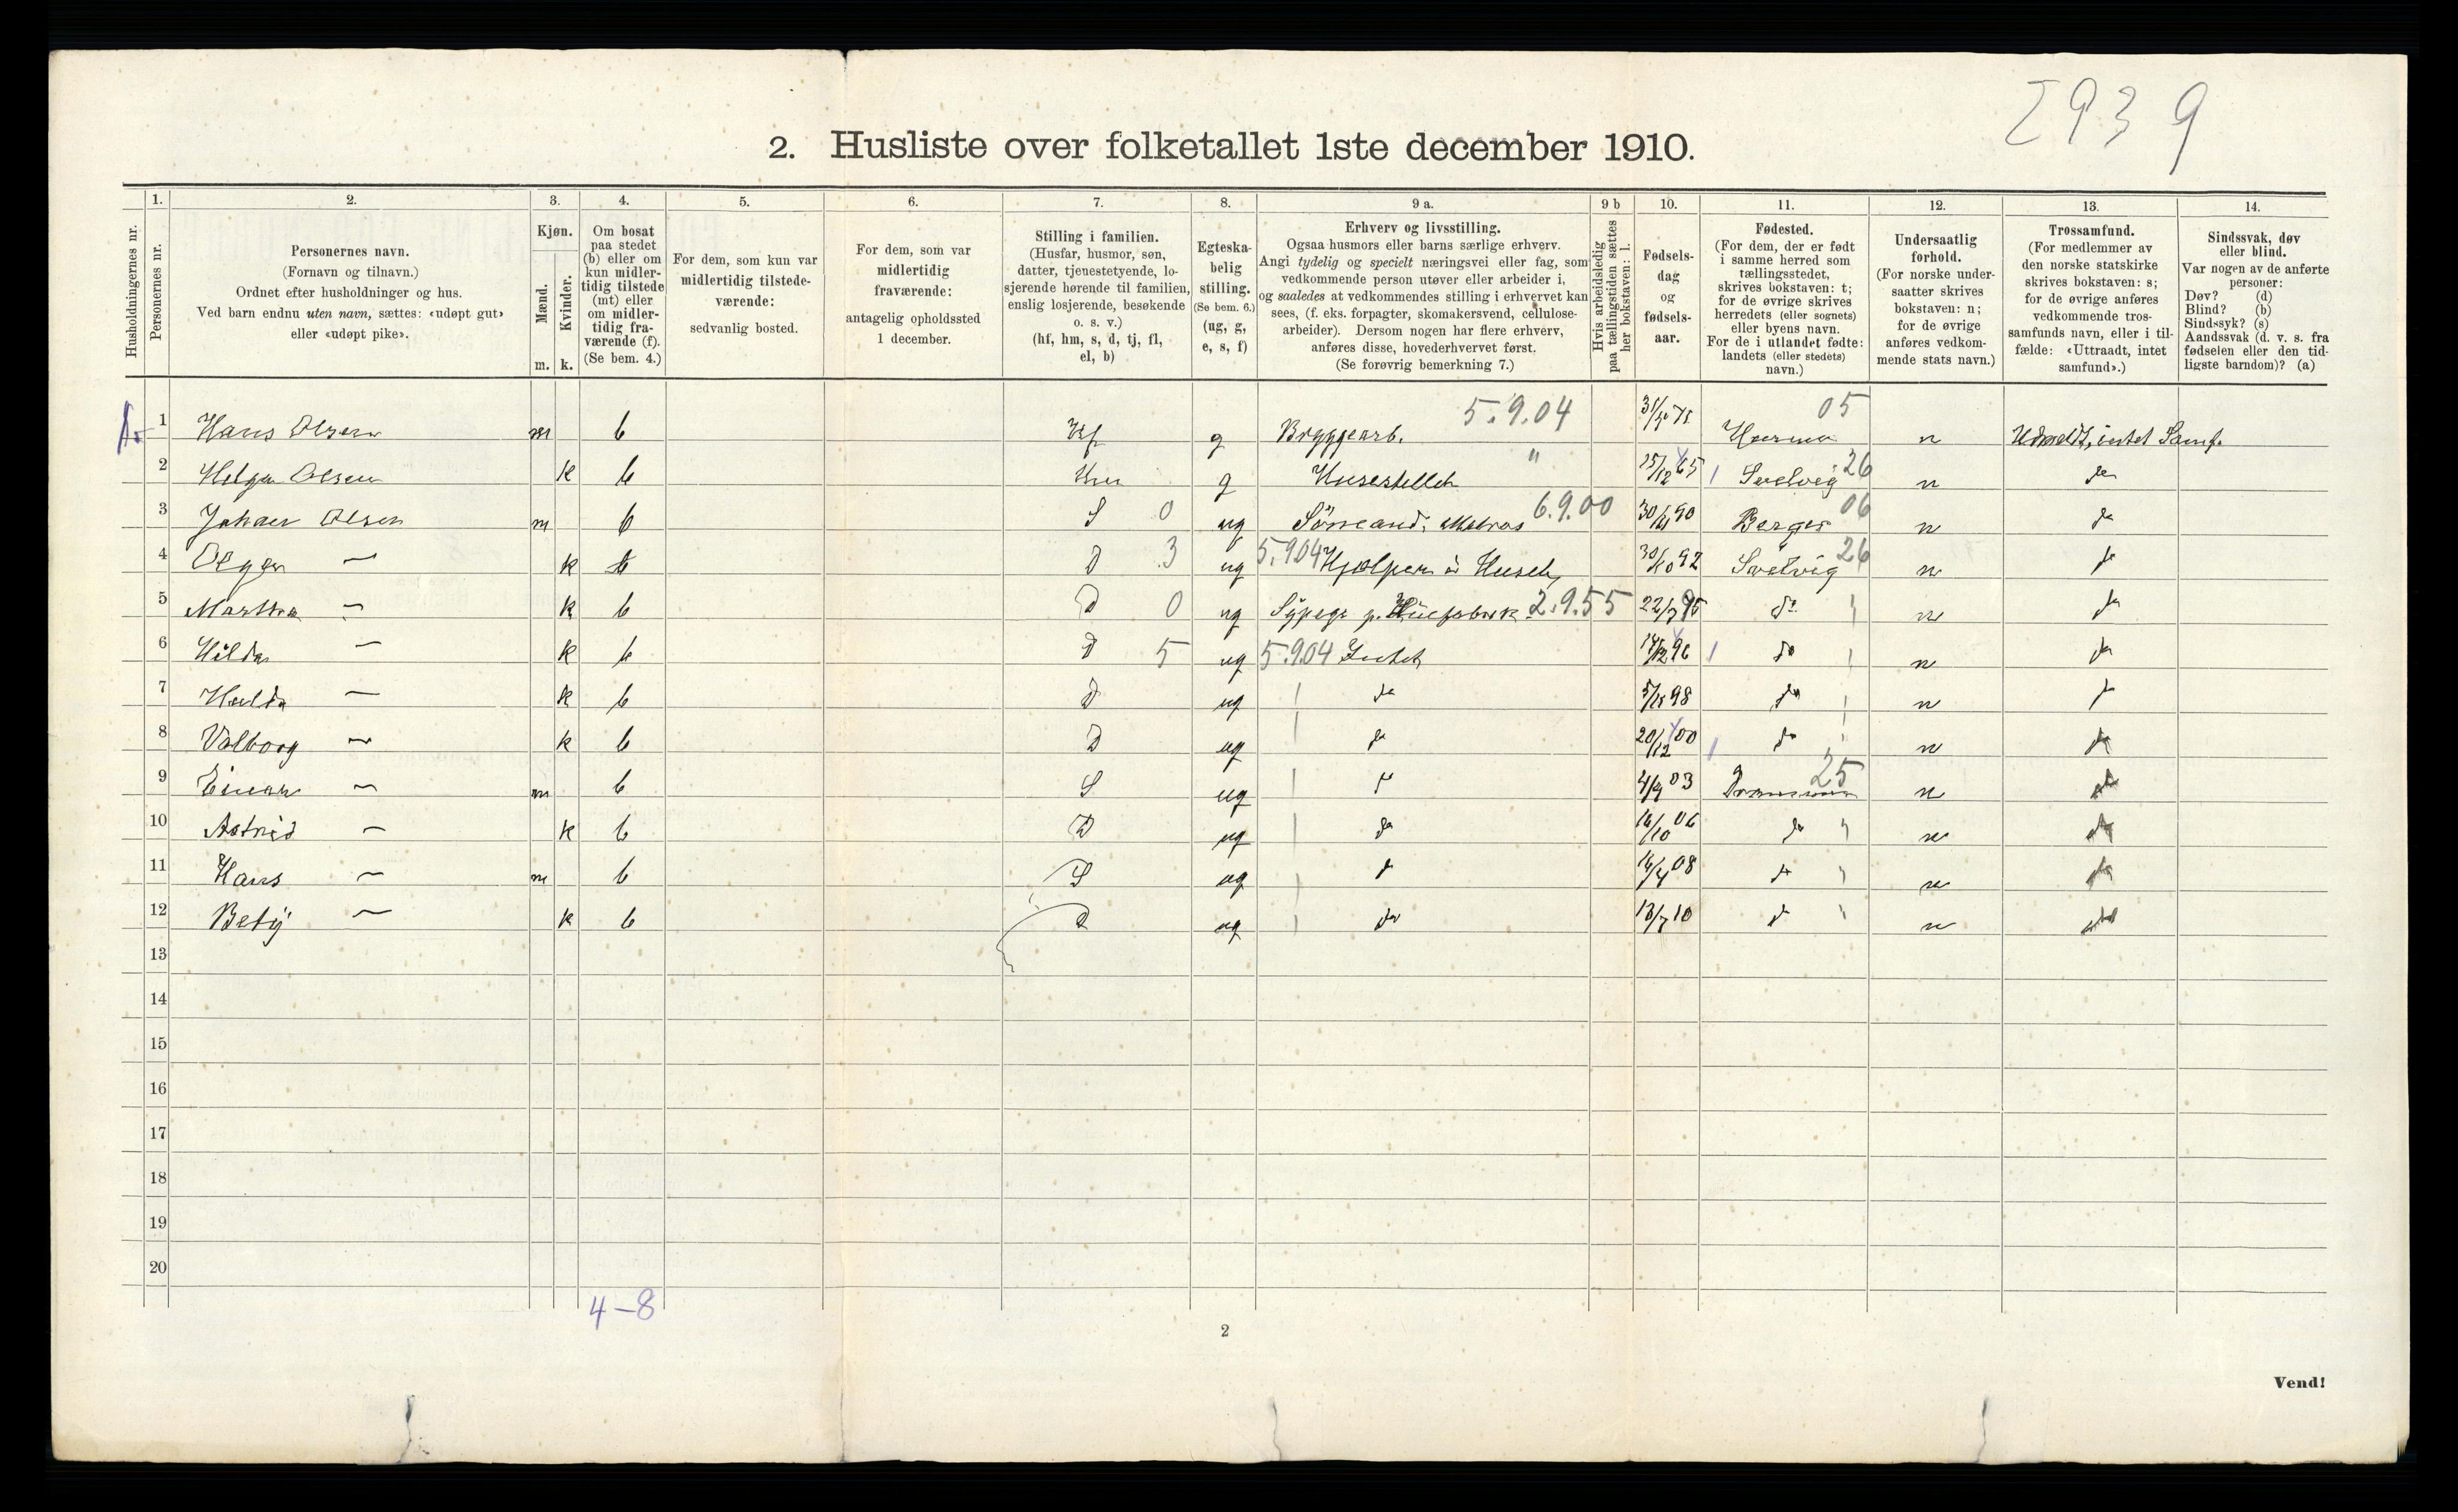 2939
2. Husliste over folketallet 1ste december 1910.
Husholdningernes nr.
1. Personernes nr.
2. Personernes navn. (Fornavn og tilnavn.) Ordnet efter husholdninger og hus. Ved barn endnu uten navn, sættes: «udøpt gut» eller «udøpt pike».
3. Kjøn. Mænd. m. Kvinder. k.
4. Om bosat paa stedet (b) eller om kun midlertidig tilstede (mt) eller om midlertidig fraværende (f). (Se bem. 4.)
5. For dem, som kun var midlertidig tilstedeværende: sedvanlig bosted.
6. For dem, som var midlertidig fraværende: antagelig opholdssted 1 december.
7. Stilling i familien. (Husfar, husmor, søn, datter, tjenestetyende, losjerende hørende til familien, enslig losjerende, besøkende o. s. v.) (hf, hm, s, d, tj, fl, el, b)
8. Egteskabelig stilling. (Se bem. 6.) (ug, g, e, s, f)
9 a. Erhverv og livsstilling. Ogsaa husmors eller barns særlige erhverv. Angi tydelig og specielt næringsvei eller fag, som vedkommende person utøver eller arbeider i, og saaledes at vedkommendes stilling i erhvervet kan sees, (f. eks. forpagter, skomakersvend, cellulosearbeider). Dersom nogen har flere erhverv, anføres disse, hovederhvervet først. (Se forøvrig bemerkning 7.)
9 b Hvis arbeidsledig paa tællingstiden sættes her bokstaven: l.
10. Fødselsdag og fødselsaar.
11. Fødested. (For dem, der er født i samme herred som tællingsstedet, skrives bokstaven: t; for de øvrige skrives herredets (eller sognets) eller byens navn. For de i utlandet fødte: landets (eller stedets) navn.)
12. Undersaatlig forhold. (For norske undersaatter skrives bokstaven: n; for de øvrige anføres vedkommende stats navn.)
13. Trossamfund. (For medlemmer av den norske statskirke skrives bokstaven: s; for de øvrige anføres vedkommende trossamfunds navn, eller i tilfælde: «Uttraadt, intet samfund».)
14. Sindssvak, døv eller blind. Var nogen av de anførte personer: Døv? (d) Blind? (b) Sindssyk? (s) Aandssvak (d. v. s. fra fødselen eller den tidligste barndom)? (a)
1 Hans Olsen m b Hf g Bryggearb. 5.9.04 05 n Udmeldt, intet Samf.
2 Helga Olsen k b Hm g Husestellet " 15/12 65 Svelvig 26 n do
3 Johan Olsen m b S 0 ug Sömand, Matros 6.9.00 Berger 06 n do
4 Olga — k b D 3 ug 5.904 Hjælper i Huset 30/10 92 Svelvig 26 n do
5 Martha — k b D 0 ug Sypige p. 2.9.55 do n do
6 Hilda — k b D 5 ug 5.904 Intet do n do
7 Hulda — k b D ug do do n do
8 Valborg — k b D ug do 20/12 00 do n do
9 Einar — m b S ug do 4/9 03 Drammen 25 n do
10 Astrid — k b D ug do 16/10 06 do n do
11 Hans — m b S ug do 16/4 08 do n do
12 Bety — k b D ug do 13/7 10 do n do
13
14
15
16
17
18
19
20
4–8
2
Vend!